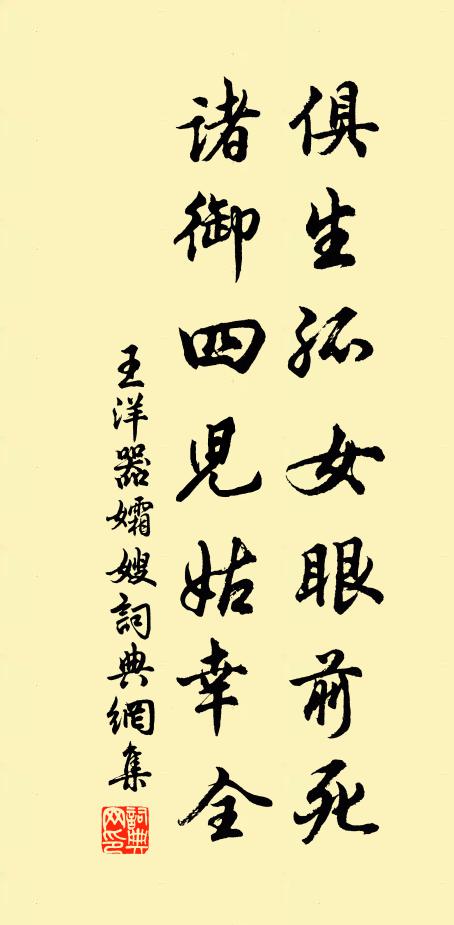 俱生孤女眼前死
诸御四児姑幸全
王洋器孀嫂詞典網集
詞典网印